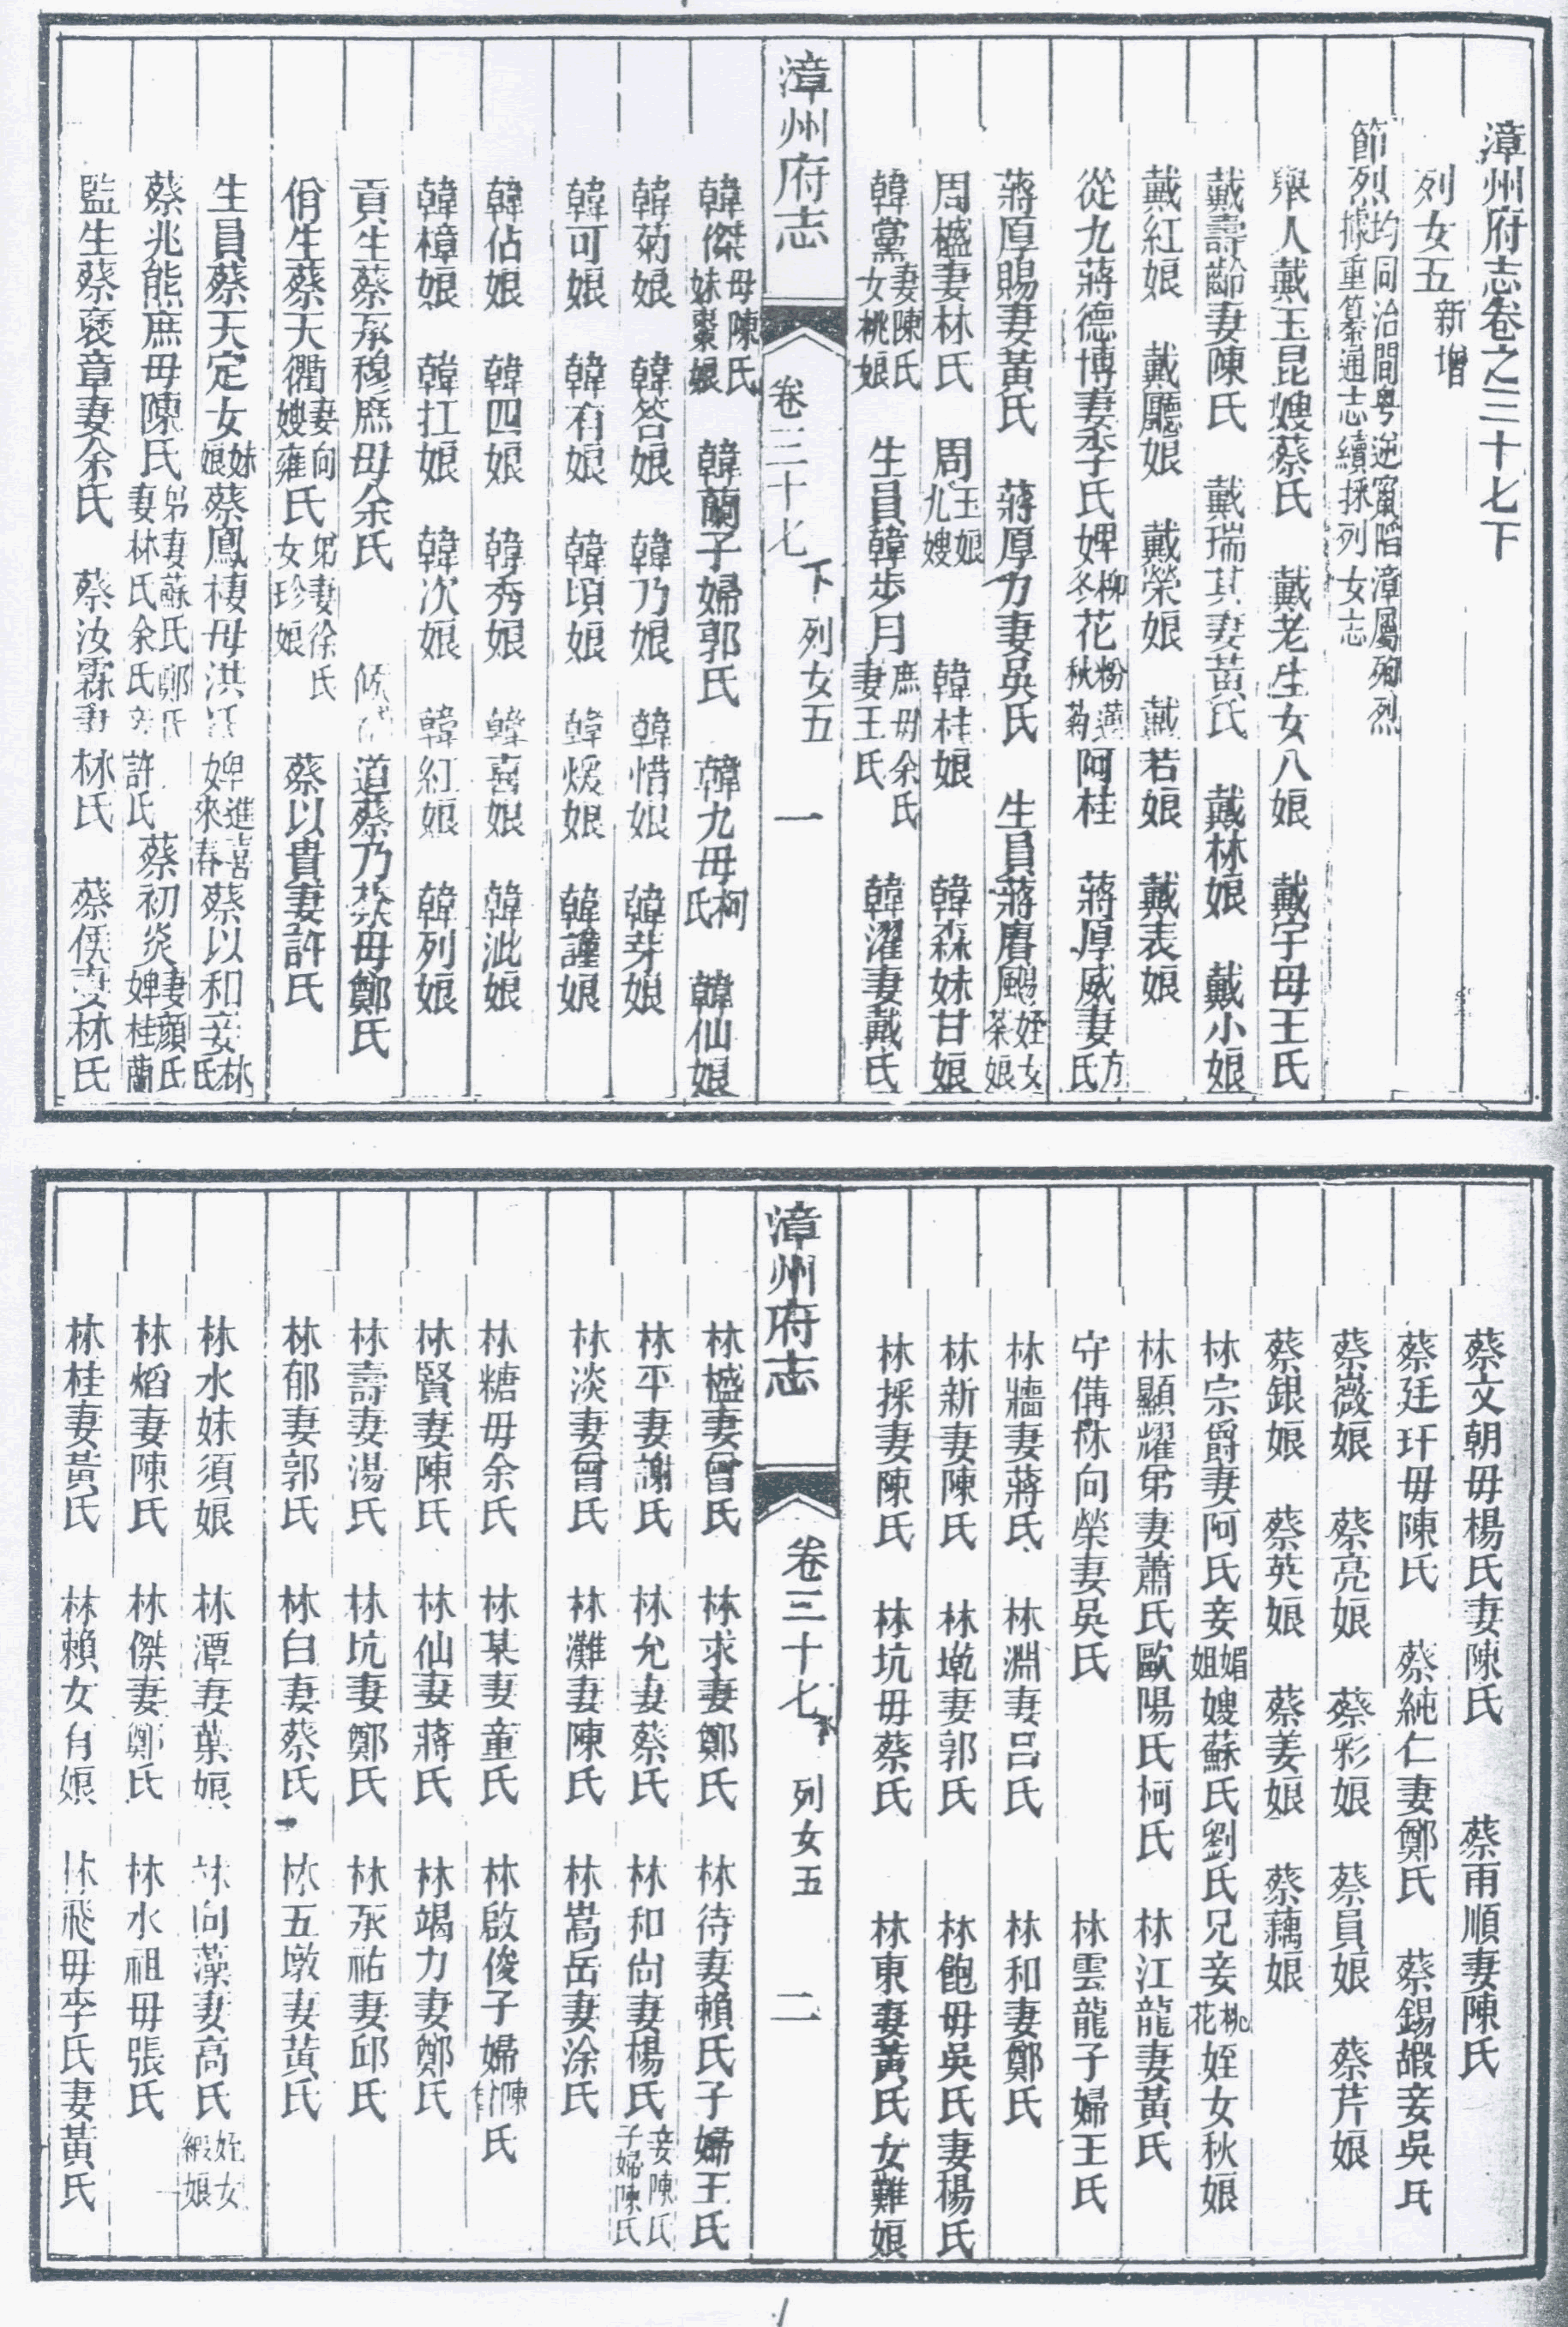 漳州府志卷之三十七下
列女五 新增
節烈 均同治間粤逆竄陷漳屬殉烈 據重纂通志續採列女志
舉人戴玉昆嫂蔡氏 戴老生女八娘 戴宇母王氏
戴壽齡妻陳氏 戴瑞其妻黃氏 戴林娘 戴小娘
戴紅娘 戴廳娘 戴榮娘 戴若娘 戴表娘
從九蔣德博妻李氏婢柳花冬粉蓮秋菊阿桂 蔣厚威妻方氏
蔣厚賜妻黃氏 蔣厚力妻吳氏 生員蔣賡颺姪女茶娘
周樾妻林氏 周玉娘九嫂 韓桂娘 韓森妹甘娘
韓黨妻陳氏女桃娘 生員韓步月庶母余氏妻王氏 韓濯妻戴氏
漳州府志 卷三十七下 列女五 一
韓傑母陳氏妹棗娘 韓蘭子婦郭氏 韓九母柯氏 韓仙娘
韓菊娘 韓答娘 韓乃娘 韓惜娘 韓芽娘
韓可娘 韓有娘 韓頃娘 韓煖娘 韓謹娘
韓佔娘 韓四娘 韓秀娘 韓喜娘 韓泚娘
韓樟娘 韓扛娘 韓次娘 韓紅娘 韓列娘
貢生蔡承穆庶母余氏 道蔡乃棻母鄭氏
佾生蔡天衢妻向氏嫂雍氏弟妻徐氏女珍娘 蔡以貴妻許氏
生員蔡天定女妹娘蔡鳳棲母洪氏 婢進喜來春蔡以和妾林氏
蔡兆熊庶母陳氏弟妻蘇氏鄭氏妻林氏余氏許氏 蔡初炎妻顏氏婢桂蘭
監生蔡褒章妻余氏 蔡汝霖妻林氏 蔡妻林氏
蔡文朝母楊氏妻陳氏 蔡雨順妻陳氏
蔡廷玕母陳氏 蔡純仁妻鄭氏 蔡錫嘏妾吳氏
蔡薇娘 蔡亮娘 蔡彩娘 蔡員娘 蔡芹娘
蔡銀娘 蔡英娘 蔡姜娘 蔡藕娘
林宗爵妻阿氏妾媚姐嫂蘇氏劉氏兄妾桃花姪女秋娘
林顯耀弟妻蕭氏歐陽氏柯氏 林江龍妻黃氏
守備林向榮妻吳氏 林雲龍子婦王氏
林牆妻蔣氏 林淵妻呂氏 林和妻鄭氏
林新妻陳氏 林墘妻郭氏 林飽母吳氏妻楊氏
林採妻陳氏 林坑母蔡氏 林東妻黃氏女難娘
漳州府志 卷三十七下 列女五 二
林樾妻曾氏 林求妻鄭氏 林待妻賴氏子婦王氏
林平妻謝氏 林允妻蔡氏 林和尚妻楊氏妾陳氏子婦陳氏
林淡妻曾氏 林灘妻陳氏 林嵩岳妻涂氏
林糖母余氏 林某妻童氏 林啟俊子婦陳氏
林賢妻陳氏 林仙妻蔣氏 林竭力妻鄭氏
林壽妻湯氏 林坑妻鄭氏 林承祐妻邱氏
林郁妻郭氏 林白妻蔡氏 林五墩妻黃氏
林水妹須娘 林潭妻葉娘 林向藻妻高氏姪女緞娘
林焰妻陳氏 林傑妻鄭氏 林水祖母張氏
林桂妻黃氏 林賴女有娘 林飛母李氏妻黃氏